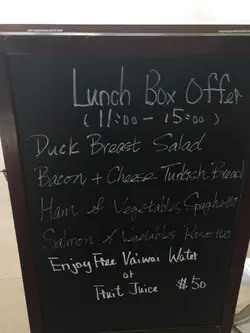 Lunch Box Offer
(11:00 - 15:00)
Duck Breast Salad
Bacon + Cheese Turkish Bread
Ham & Vegetables Spaghetti
Salmon & Vegetables
Enjoy Free Vaiwai Water
or
Fruit Juice $50